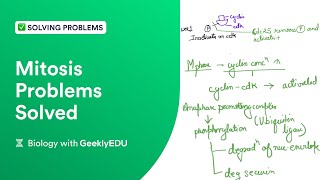 SOLVING PROBLEMS
Mitosis
Problems
Solved
Biology with GeeklyEDU
cyclin
cdk
Inactivates on cdk
cdc25 removes (P) and
activates
M phase → cyclin concⁿ ↑
cyclin - cdk → activated
Anaphase promoting complex
phosphorylation (Ubiquitin
ligase)
degradⁿ nuc envelope
deg securin